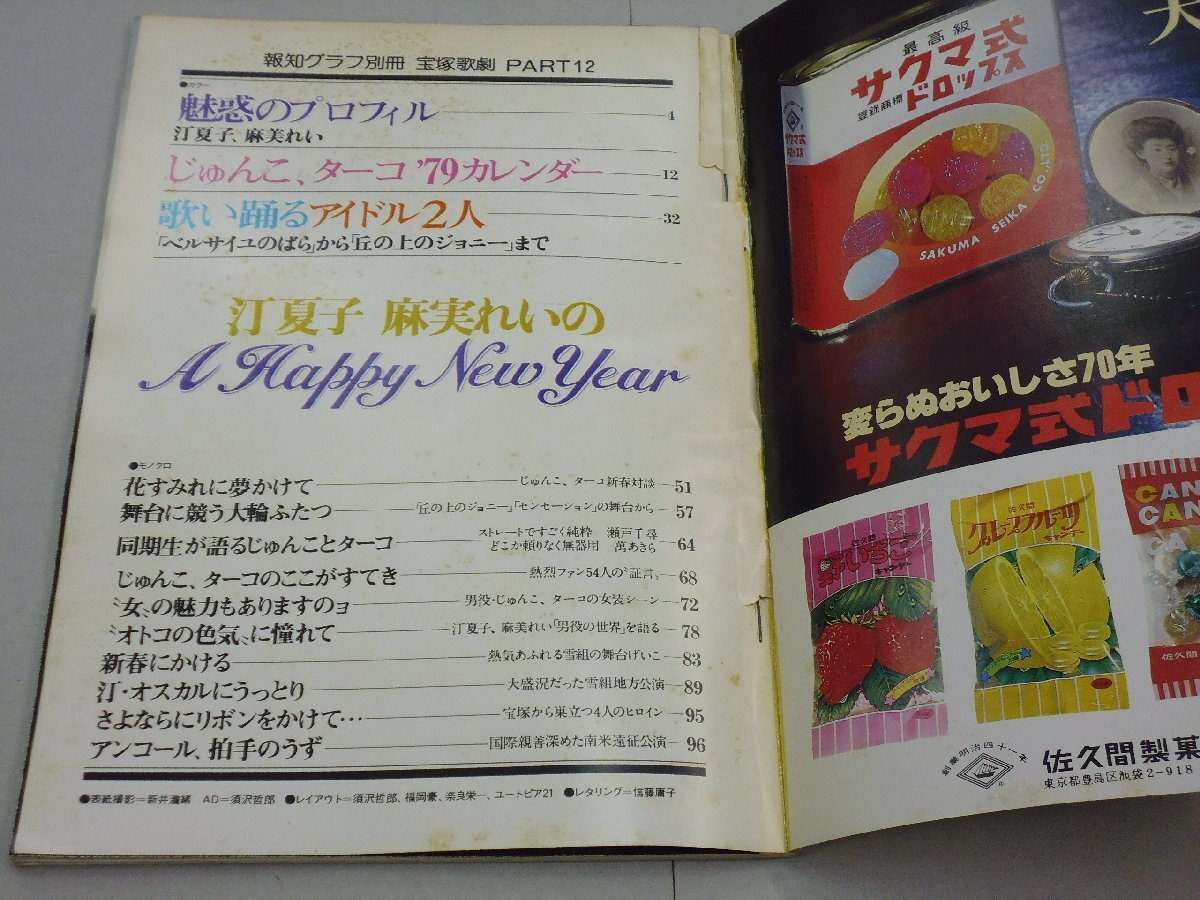 報知グラフ別冊 宝塚歌劇 PART12
●カラー
魅惑のプロフィル 4
汀夏子、麻美れい
じゅんこ、ターコ '79カレンダー 12
歌い踊るアイドル2人 32
「ベルサイユのばら」から「丘の上のジョニー」まで
汀夏子 麻実れいの
A Happy New Year
●モノクロ
花すみれに夢かけて じゅんこ、ターコ新春対談 51
舞台に競う大輪ふたつ 「丘の上のジョニー」「センセーション」の舞台から 57
同期生が語るじゅんことターコ ストレートですごく純粋 瀬戸千尋
どこか頼りなく無器用 萬あきら 64
じゅんこ、ターコのここがすてき 熱烈ファン54人の〝証言〟 68
〝女〟の魅力もありますのョ 男役・じゅんこ、ターコの女装シーン 72
〝オトコの色気〟に憧れて 汀夏子、麻美れい「男役の世界」を語る 78
新春にかける 熱気あふれる雪組の舞台げいこ 83
汀・オスカルにうっとり 大盛況だった雪組地方公演 89
さよならにリボンをかけて… 宝塚から巣立つ4人のヒロイン 95
アンコール、拍手のうず 国際親善深めた南米遠征公演 96
●表紙撮影=新井瀧緒 AD=須沢哲郎 ●レイアウト=須沢哲郎、福岡豪、奈良栄一、ユートピア21 ●レタリング=信藤庸子
最高級
サクマ式
登録商標 ドロップス
サクマ式
ドロップス
SAKUMA SEIKA CO., LTD.
変らぬおいしさ70年
サクマ式ドロ
佐久間
いちご
キャンデー
佐久間
グレープフルーツ
キャンデー
CAN
CAN
佐久間
創業明治四十一年
佐久間製菓
東京都豊島区池袋2-918